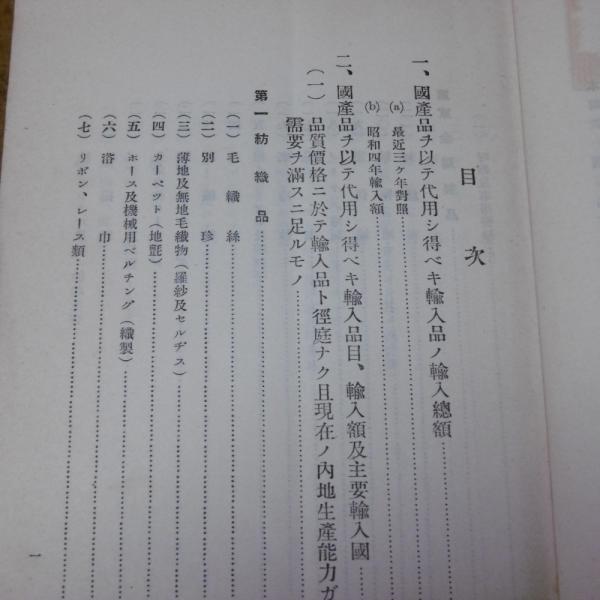 目次
一、國產品ヲ以テ代用シ得ベキ輸入品ノ輸入總額
(a) 最近三ヶ年對照
(b) 昭和四年輸入額
二、國產品ヲ以テ代用シ得ベキ輸入品目、輸入額及主要輸入國
(一) 品質價格ニ於テ輸入品ト徑庭ナク且現在ノ內地生產能力ガ
需要ヲ滿スニ足ルモノ
第一 紡織品
(一) 毛織絲
(二) 別珍
(三) 薄地及無地毛織物(羅紗及セルヂス)
(四) カーペット(地氈)
(五) ホース及機械用ベルチング(織製)
(六) 浴巾
(七) リボン、レース類
一